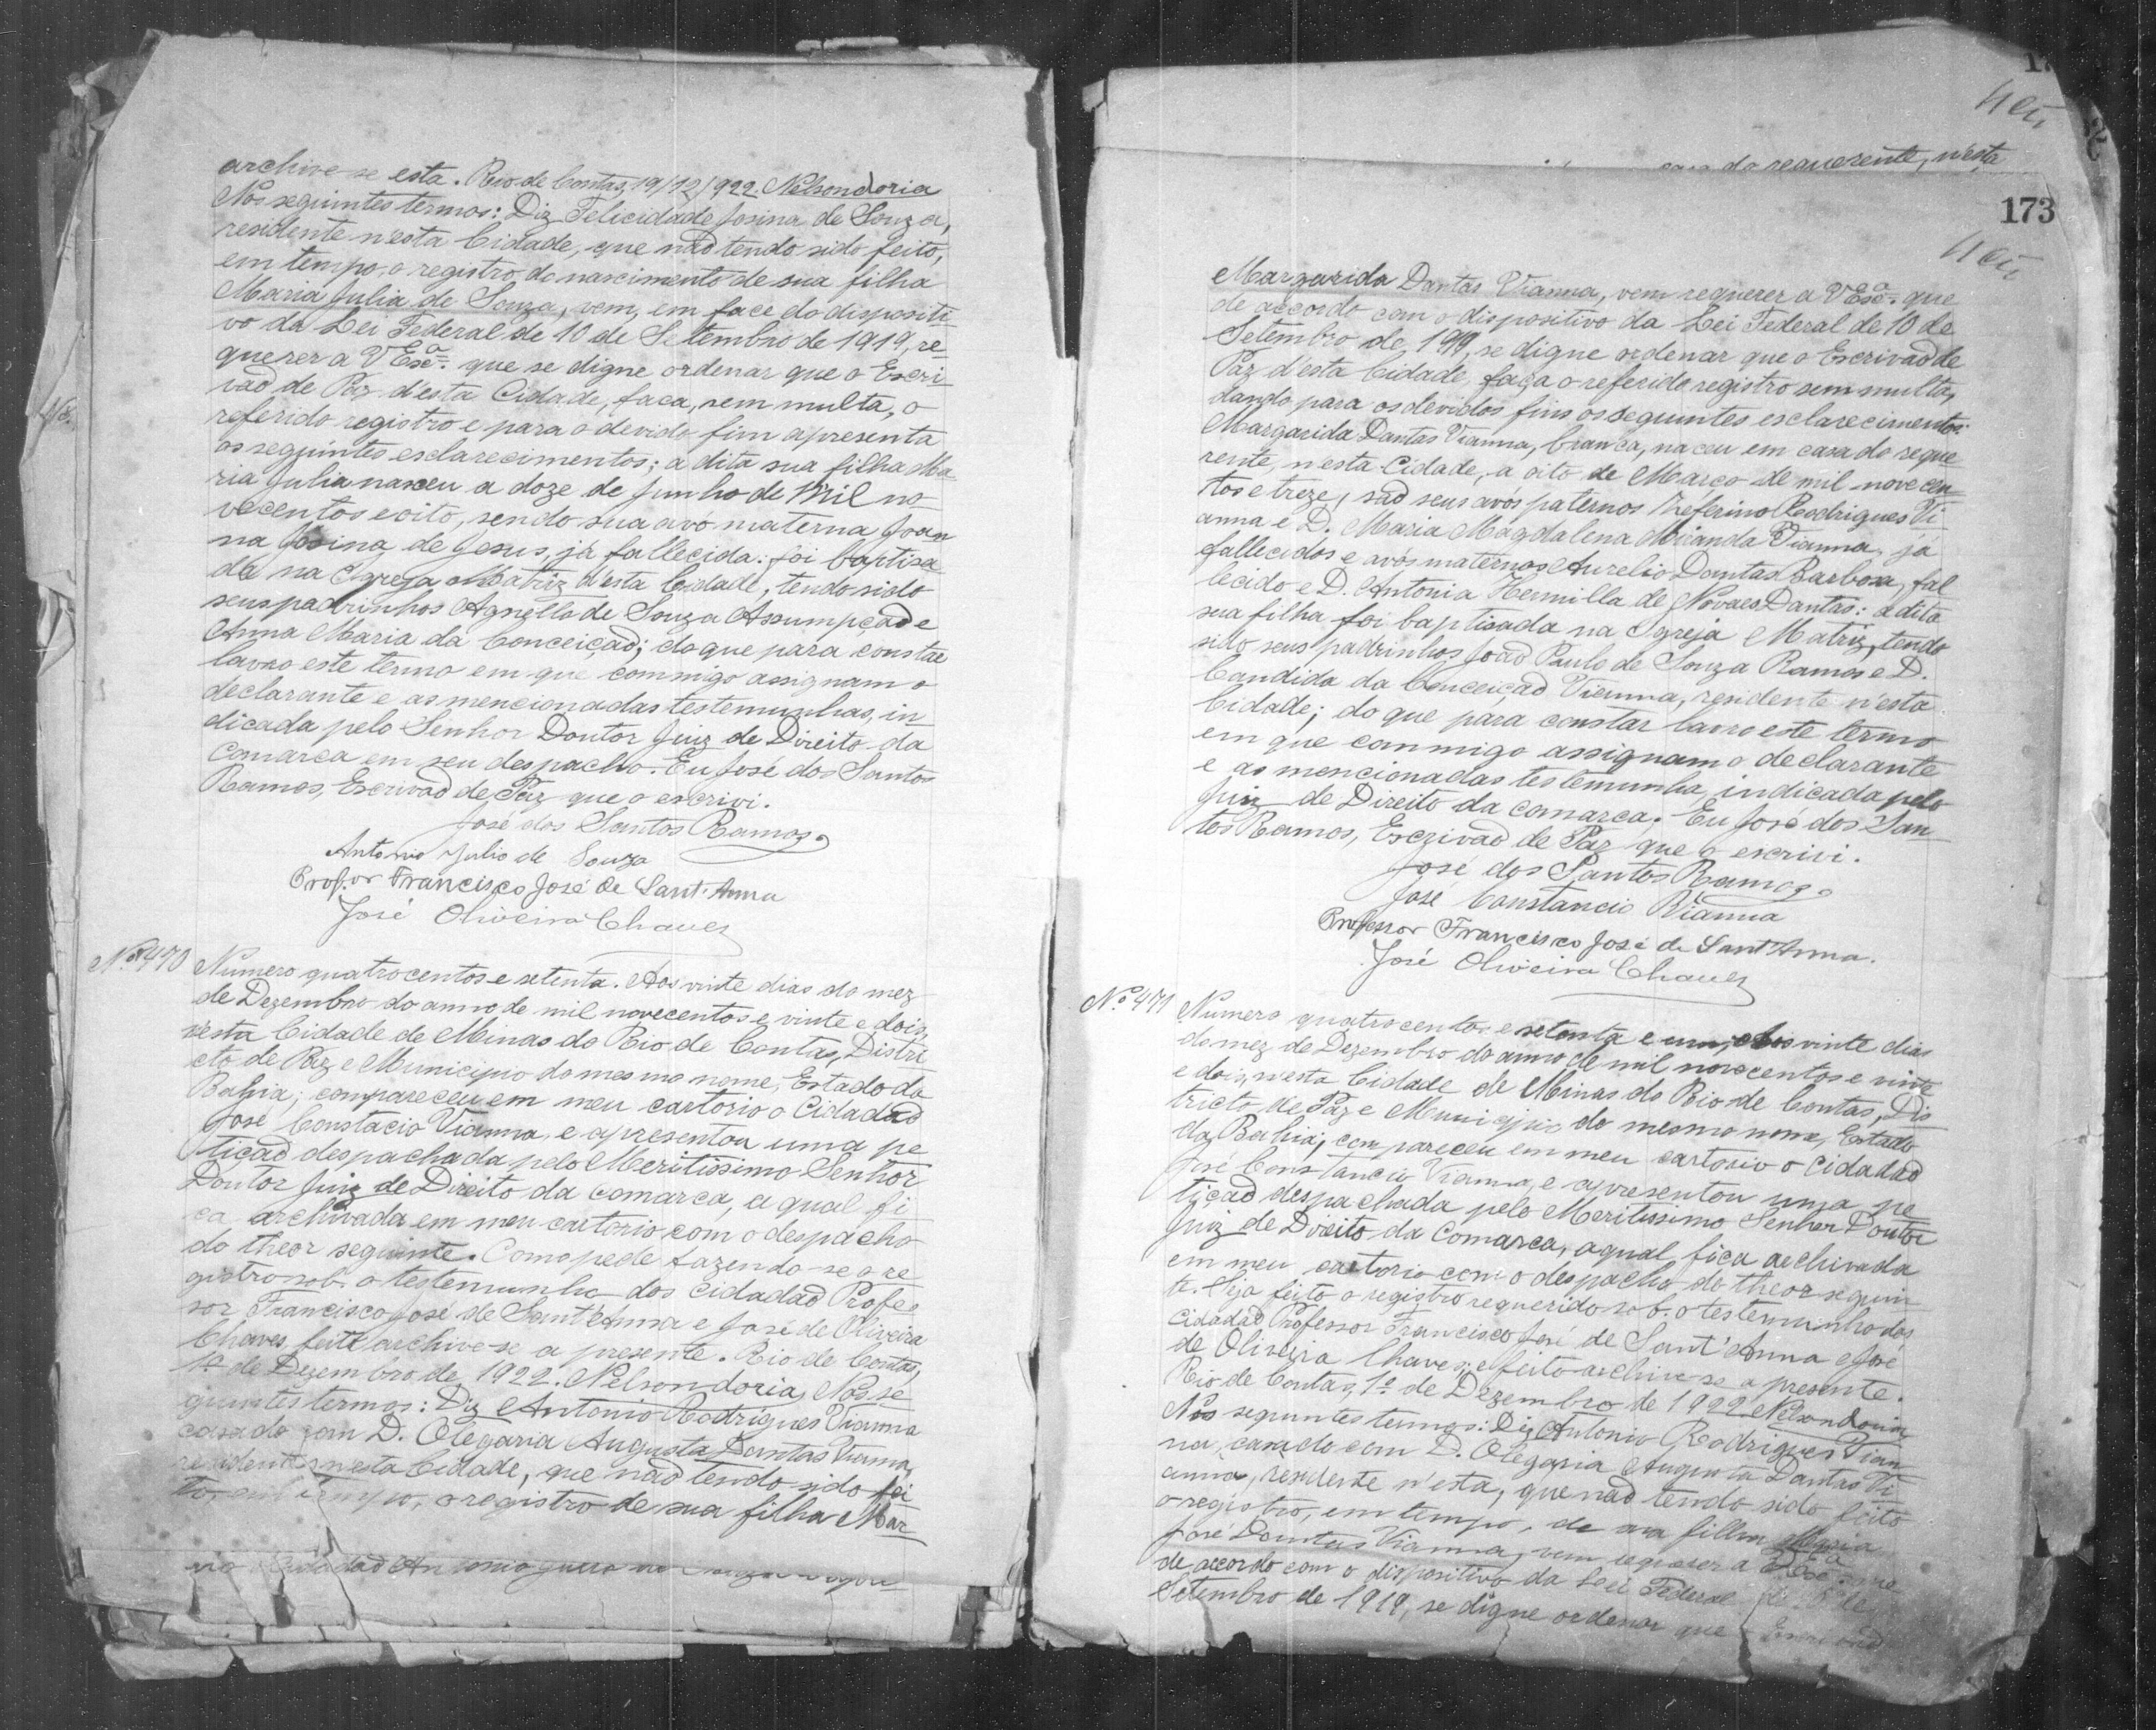 archive-se esta. Rio de Contas, 19/12/922. Nelsondoria
Nos seguintes termos: Diz Felicidade Josina de Souza,
residente n'esta Cidade, que não tendo sido feito,
em tempo, o registro do nascimento de sua filha
Maria Julia de Souza, vem, em face do dispositi
vo da Lei Federal de 10 de Setembro de 1919, re-
querer a V Exc.ª que se digne ordenar que o Escri-
vão de Paz d'esta Cidade, faca, sem multa, o
referido registro e para o devido fim apresenta
os seguintes esclarecimentos; a dita sua filha Ma
ria Julia nasceu a doze de Junho de mil no-
vecentos e oito, sendo sua avó materna Joan
na Josina de Jesus, já fallecida: foi baptisa
da na Igreja Matriz d'esta Cidade, tendo sido
seus padrinhos Agnello de Souza Assumpção e
Anna Maria da Conceição; do que para constar
lavro este termo em que commigo assignam o
declarante e as mencionadas testemunhas, in
dicada pelo Senhor Doutor Juiz de Direito da
Comarca em seu despacho. Eu José dos Santos
Ramos, Escrivão de Paz que o escrivi.
José dos Santos Ramos
Antonio Julio de Souza
Prof.or Francisco José de Sant'Anna
José Oliveira Chaves
Nº 470 Numero quatrocentos e setenta. Aos vinte dias do mez
de Dezembro do anno de mil novecentos e vinte e dois,
n'esta Cidade de Minas do Rio de Contas, Distri
cto de Paz e Municipio do mesmo nome, Estado da
Bahia; compareceu em meu cartorio o Cidadão
José Constacio Vianna, e apresentou uma pe
tição despachada pelo Meritissimo Senhor
Doutor Juiz de Direito da Comarca, a qual fi
ca archivada em meu cartorio com o despacho
do theor seguinte. Como pede fazendo-se o re
gistro sob. o testemunho dos Cidadão Profes
sor Francisco José de Sant'Anna e José de Oliveira
Chaves, feito archive-se a presente. Rio de Contas,
1º de Dezembro de 1922. Nelsondoria, Nos se
guintes termos: Diz Antonio Rodrigues Vianna
casado com D. Olegaria Augusta Dantas Vianna,
residente n'esta Cidade, que não tendo sido fei
to, em tempo, o registro de sua filha Mar
Cidadão Antonio
casa do requerente, n'esta
173
Margarida Dantas Vianna, vem requerer a V Exc.ª que
de accordo com o dispositivo da Lei Federal de 10 de
Setembro de 1919, se digne ordenar que o Escrivão de
Paz d'esta Cidade, faça o referido registro sem multa,
dando para os devidos fins os seguintes esclarecimentos:
Margarida Dantas Vianna, branca, naceu em casa do reque
rente, n'esta Cidade, a oito de Março de mil novecen
tos e treze, são seus avós paternos Zeferino Rodrigues Vi
anna e D. Maria Magdalena Miranda Vianna, já
fallecidos e avós maternos Aurelio Dantas Barbosa, fal
lecido e D. Antonia Hermilla de Novaes Dantas: a dita
sua filha foi baptisada na Igreja Matriz, tendo
sido seus padrinhos João Paulo de Souza Ramos e D.
Candida da Conceição Vianna, residente n'esta
Cidade; do que para constar lavro este termo
em que commigo assignam o declarante
e as mencionadas testemunha, indicada pelo
Juiz de Direito da Comarca. Eu José dos San-
tos Ramos, Escrivão de Paz que o escrivi.
José dos Santos Ramos
José Constancio Vianna
Professor Francisco José de Sant'Anna.
José Oliveira Chaves
Nº 471 Numero quatrocentos e setenta e um, Aos vinte dias
do mez de Dezembro do anno de mil novecentos e vinte
e dois, n'esta Cidade de Minas do Rio de Contas, Dis
tricto de Paz e Municipio do mesmo nome, Estado
da Bahia; compareceu em meu cartorio o Cidadão
José Constancio Vianna, e apresentou uma pe
tição despachada pelo Meritissimo Senhor Doutor
Juiz de Direito da Comarca, a qual fica archivada
em meu cartorio com o despacho do theor seguin
te. Seja feito o registro requerido sob. o testemunho dos
Cidadão Professor Francisco José de Sant'Anna e José
de Oliveira Chaves; e feito archive-se a presente.
Rio de Contas, 1º de Dezembro de 1922. Nelsondoria
Nos seguintes termos: Diz Antonio Rodrigues Vian
na, casado com D. Olegaria Augusta Dantas Vi
anna, residente n'esta, que não tendo sido feito
o registro, em tempo, de sua filha Maria
José Dantas Vianna, vem requerer a V Exc.ª que
de accordo com o dispositivo da Lei Federal de
Setembro de 1919, se digne ordenar que o Escrivão